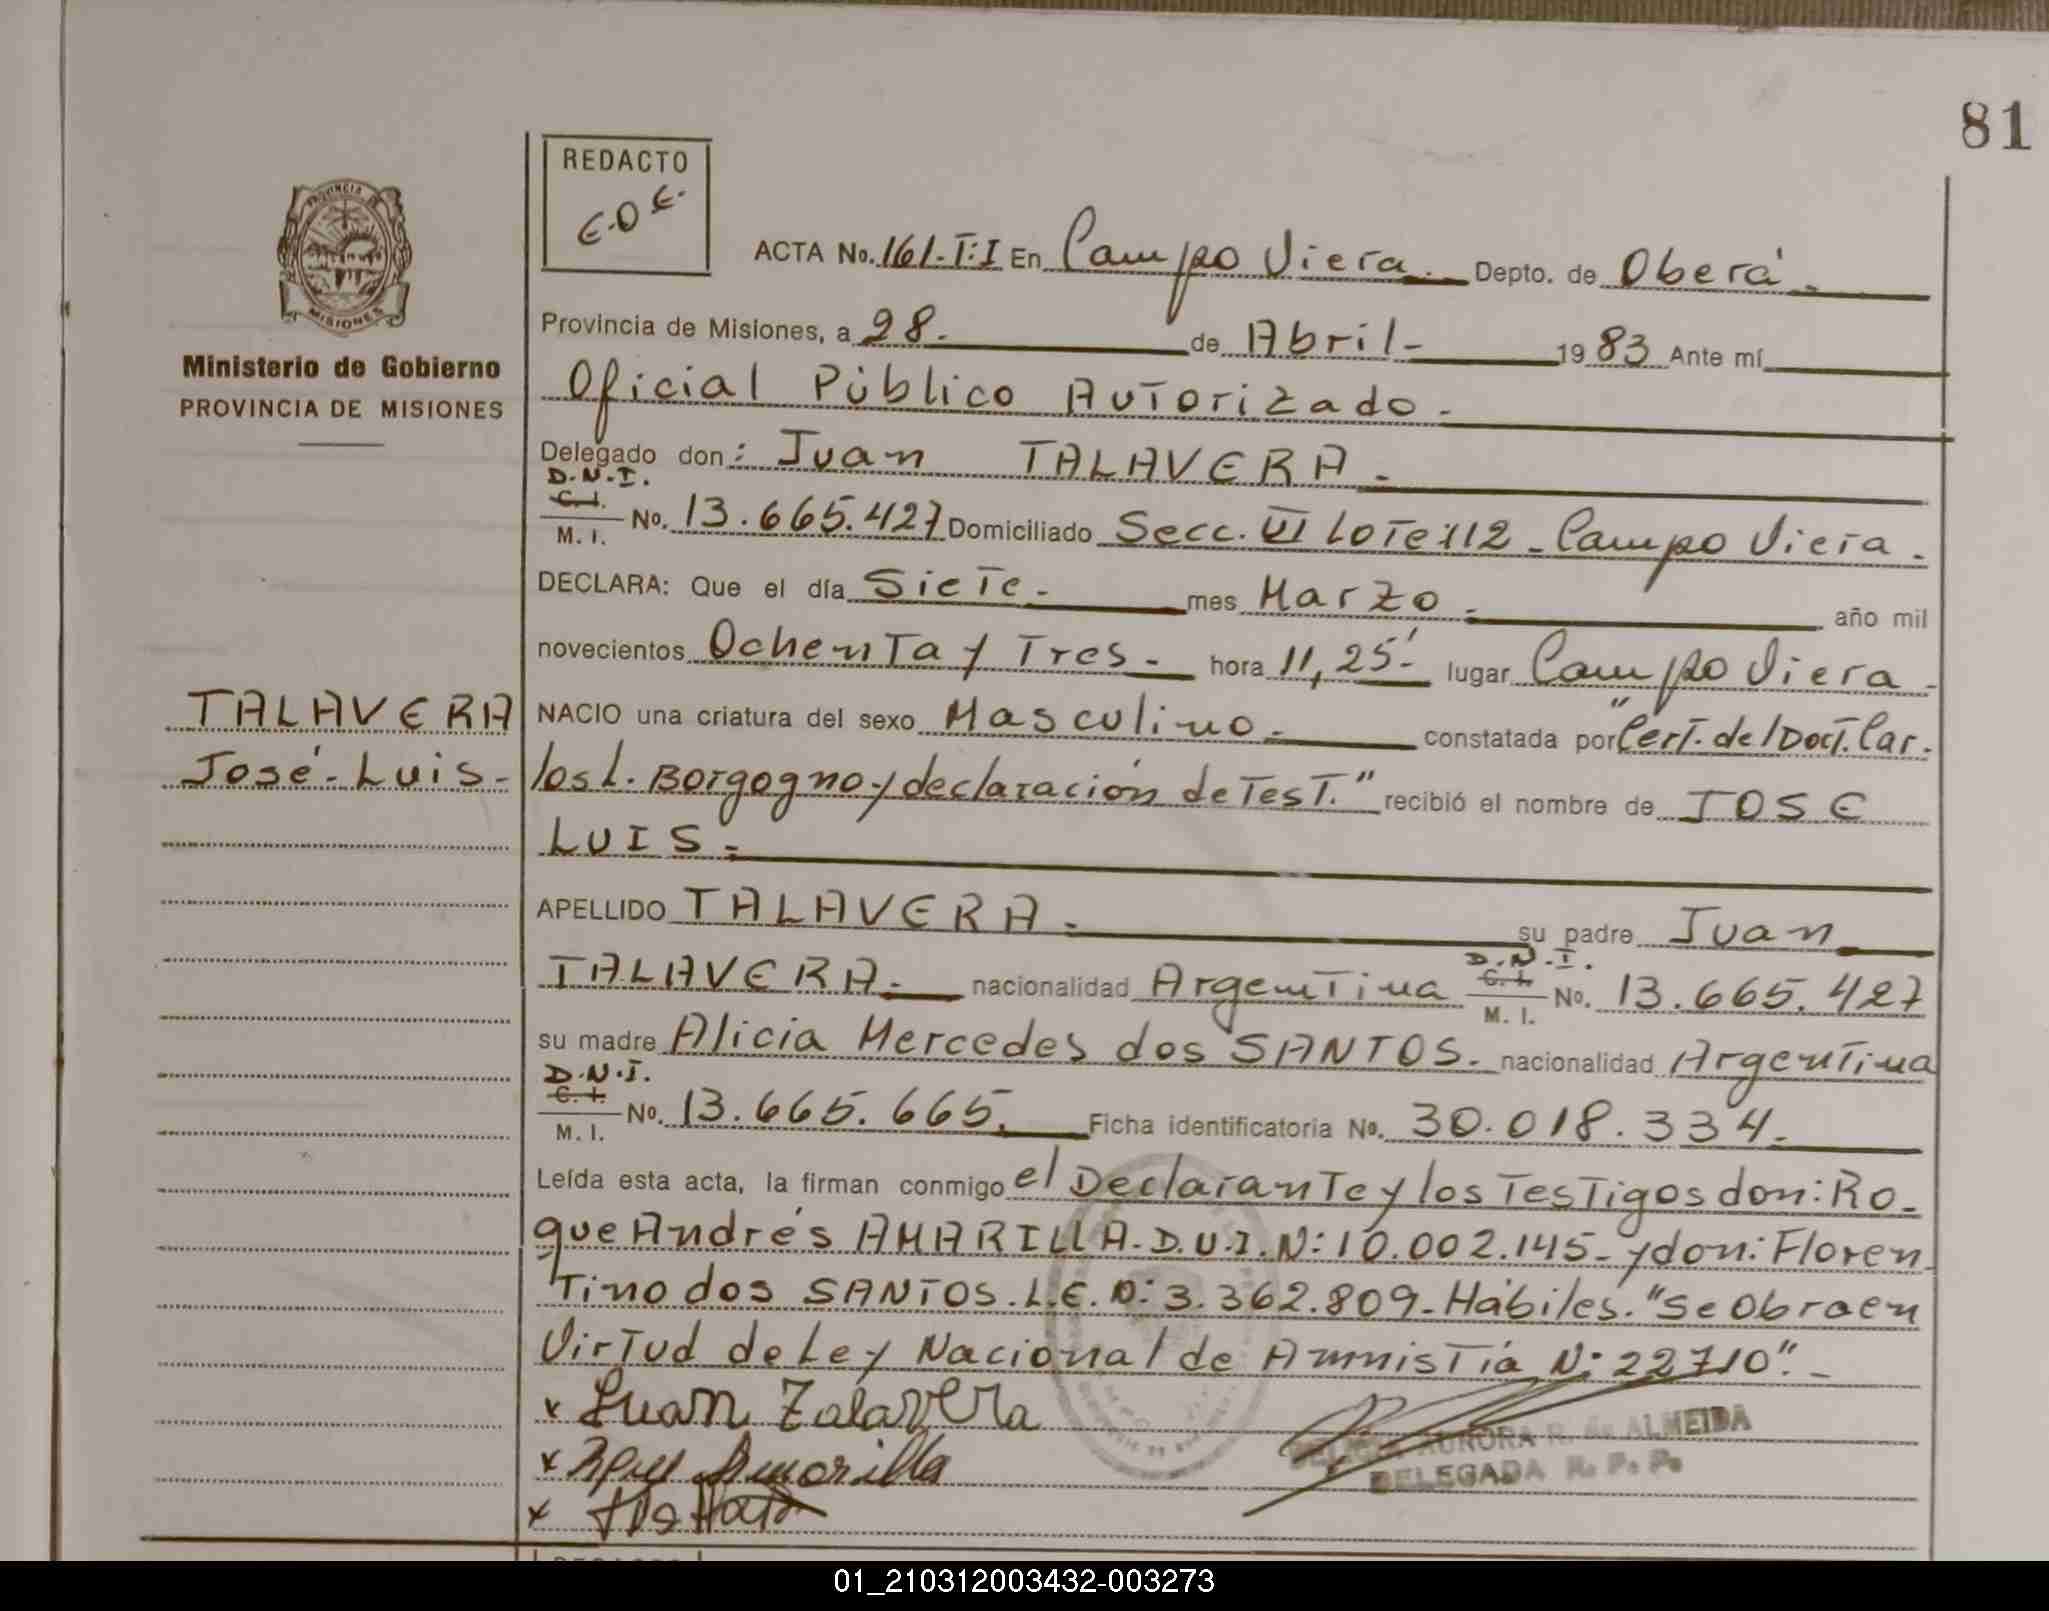 81
REDACTO
E.O.E.
PROVINCIA DE
MISIONES
ACTA No. 161-T:I En Campo Viera. Depto. de Oberá.
Provincia de Misiones, a 28. de Abril- 1983 Ante mí
Ministerio de Gobierno
PROVINCIA DE MISIONES
Oficial Público Autorizado.
Delegado don: Juan TALAVERA.
D.N.I.
C.I.
M. I. No. 13.665.427 Domiciliado Secc. VI Lote 112 - Campo Viera.
DECLARA: Que el día Siete. mes Marzo. año mil
novecientos Ochenta y Tres. hora 11,25' lugar Campo Viera
TALAVERA
José-Luis-
NACIO una criatura del sexo Masculino. constatada por "Cert. del Doct. Car.
los L. Borgogno y declaración de Test." recibió el nombre de JOSE
LUIS.
APELLIDO TALAVERA. su padre Juan
TALAVERA. nacionalidad Argentina D.N.I. C.I. M. I. No. 13.665.427
su madre Alicia Mercedes dos SANTOS. nacionalidad Argentina
D.N.I.
C.I.
M. I. No. 13.665.665. Ficha identificatoria No. 30.018.334.
Leída esta acta, la firman conmigo el Declarante y los Testigos don: Ro-
que Andrés AMARILLA. D.N.I. N: 10.002.145- y don: Floren
tino dos SANTOS. L.E. N: 3.362.809- Hábiles. "Se Obra en
Virtud de Ley Nacional de Amnistía N: 22710".-
x Juan Talavera
x Amarilla
x
AURORA R. de ALMEIDA
DELEGADA R. P. P.
01_210312003432-003273